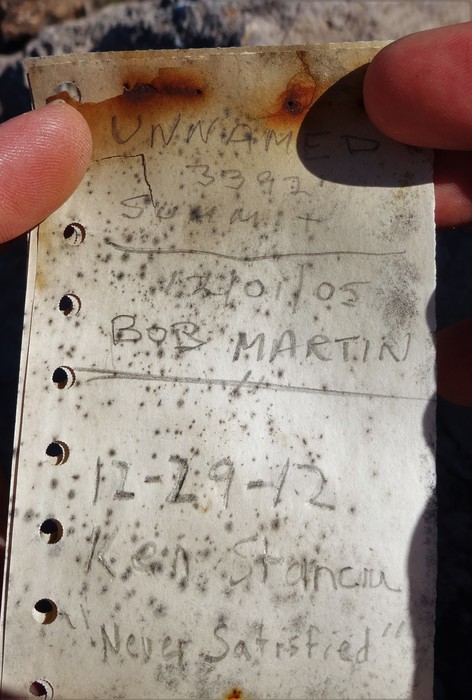 UNNAMED
3392'
SUMMIT
12/01/05
BOB MARTIN
12-29-12
Ken Stanciu
"Never Satisfied"